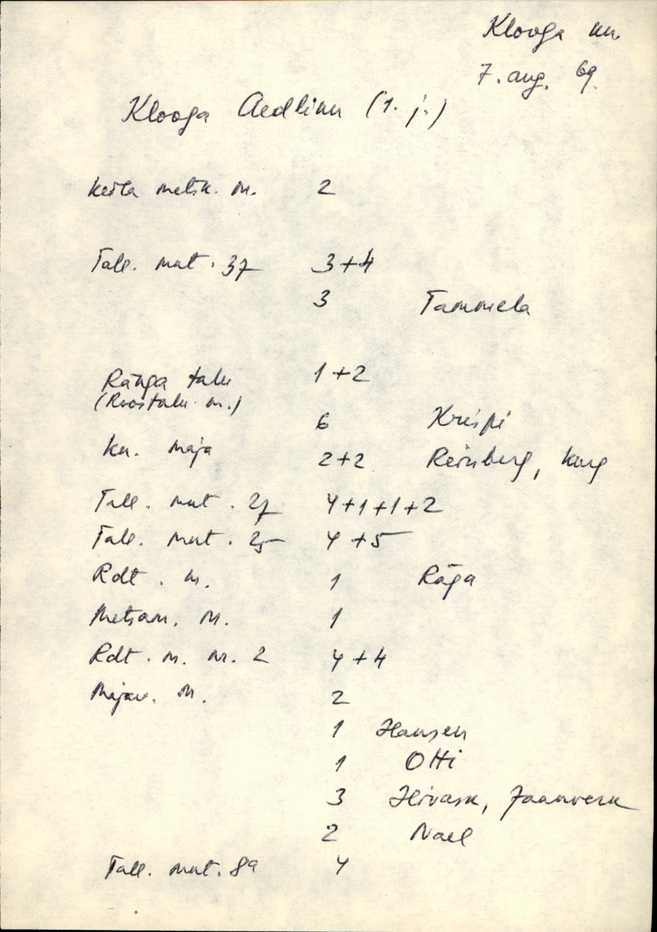 Klooga
7. aug. 69.
Klooga Aedlinn (1. j.)
Keila metsk. m. 2
Tall. mnt. 37 3+4
3 Tammela
Ränga talu 1+2
(Roostalu m.)
6 Krispi
kn. maja 2+2 Reinberg, kurg
Tall. mnt. 27 4+1+1+2
Tall. mnt. 25 4+5
Rdt. m. 1 Räga
Metsav. m. 1
Rdt. m. nr. 2 4+4
Majav. m. 2
1 Hansen
1 Otti
3 Hirvask, Jaanvesk
2 Nael
Tall. mnt. 8a 4